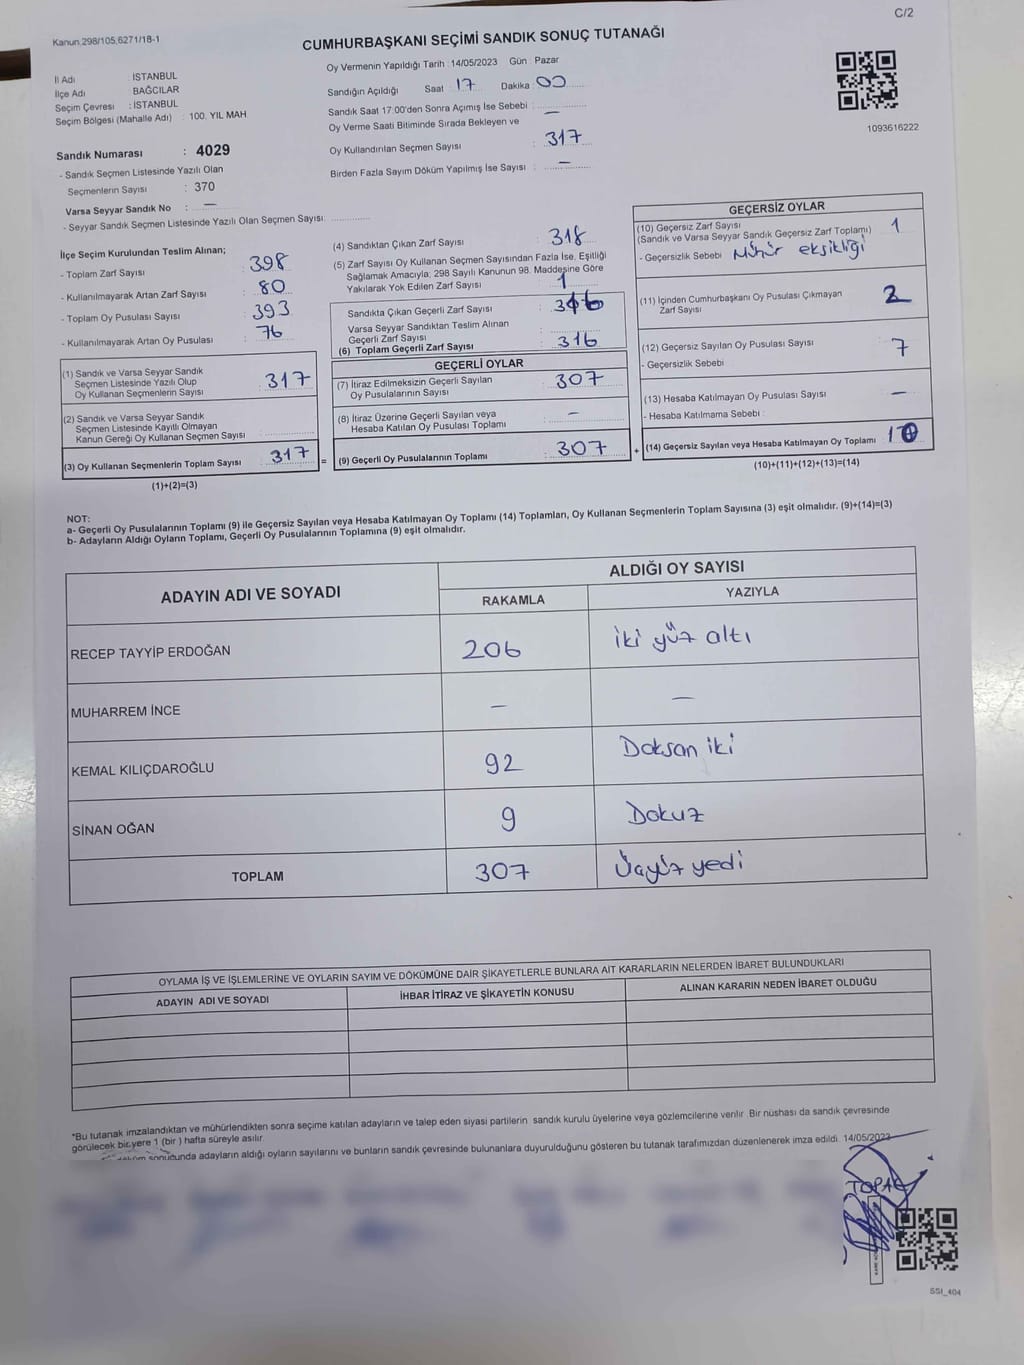 C/2
Kanun,298/105,6271/18-1
CUMHURBAŞKANI SEÇİMİ SANDIK SONUÇ TUTANAĞI
İl Adı İSTANBUL
İlçe Adı BAĞCILAR
Seçim Çevresi : İSTANBUL
Seçim Bölgesi (Mahalle Adı) : 100. YIL MAH
Sandık Numarası : 4029
- Sandık Seçmen Listesinde Yazılı Olan
Seçmenlerin Sayısı : 370
Varsa Seyyar Sandık No : —
- Seyyar Sandık Seçmen Listesinde Yazılı Olan Seçmen Sayısı:
Oy Vermenin Yapıldığı Tarih : 14/05/2023 Gün : Pazar
Sandığın Açıldığı Saat : 17 Dakika : 00
Sandık Saat 17:00'den Sonra Açılmış İse Sebebi : —
Oy Verme Saati Bitiminde Sırada Bekleyen ve
Oy Kullandırılan Seçmen Sayısı : 317
Birden Fazla Sayım Döküm Yapılmış İse Sayısı : —
1093616222
İlçe Seçim Kurulundan Teslim Alınan;
- Toplam Zarf Sayısı : 398
- Kullanılmayarak Artan Zarf Sayısı : 80
- Toplam Oy Pusulası Sayısı : 393
- Kullanılmayarak Artan Oy Pusulası : 76
(1) Sandık ve Varsa Seyyar Sandık
Seçmen Listesinde Yazılı Olup
Oy Kullanan Seçmenlerin Sayısı : 317
(2) Sandık ve Varsa Seyyar Sandık
Seçmen Listesinde Kayıtlı Olmayan
Kanun Gereği Oy Kullanan Seçmen Sayısı
(3) Oy Kullanan Seçmenlerin Toplam Sayısı : 317 =
(1)+(2)=(3)
(4) Sandıktan Çıkan Zarf Sayısı : 318
(5) Zarf Sayısı Oy Kullanan Seçmen Sayısından Fazla İse, Eşitliği
Sağlamak Amacıyla; 298 Sayılı Kanunun 98. Maddesine Göre
Yakılarak Yok Edilen Zarf Sayısı : 1
Sandıkta Çıkan Geçerli Zarf Sayısı : 316
Varsa Seyyar Sandıktan Teslim Alınan
Geçerli Zarf Sayısı
(6) Toplam Geçerli Zarf Sayısı : 316
GEÇERLİ OYLAR
(7) İtiraz Edilmeksizin Geçerli Sayılan
Oy Pusulalarının Sayısı : 307
(8) İtiraz Üzerine Geçerli Sayılan veya
Hesaba Katılan Oy Pusulası Toplamı : —
(9) Geçerli Oy Pusulalarının Toplamı : 307 +
GEÇERSİZ OYLAR
(10) Geçersiz Zarf Sayısı 1
(Sandık ve Varsa Seyyar Sandık Geçersiz Zarf Toplamı)
- Geçersizlik Sebebi : Mühür eksikliği
(11) İçinden Cumhurbaşkanı Oy Pusulası Çıkmayan
Zarf Sayısı 2
(12) Geçersiz Sayılan Oy Pusulası Sayısı : 7
- Geçersizlik Sebebi
(13) Hesaba Katılmayan Oy Pusulası Sayısı : —
- Hesaba Katılmama Sebebi :
(14) Geçersiz Sayılan veya Hesaba Katılmayan Oy Toplamı : 10
(10)+(11)+(12)+(13)=(14)
NOT:
a- Geçerli Oy Pusulalarının Toplamı (9) ile Geçersiz Sayılan veya Hesaba Katılmayan Oy Toplamı (14) Toplamları, Oy Kullanan Seçmenlerin Toplam Sayısına (3) eşit olmalıdır. (9)+(14)=(3)
b- Adayların Aldığı Oyların Toplamı, Geçerli Oy Pusulalarının Toplamına (9) eşit olmalıdır.
ADAYIN ADI VE SOYADI ALDIĞI OY SAYISI
RAKAMLA YAZIYLA
RECEP TAYYİP ERDOĞAN 206 iki yüz altı
MUHARREM İNCE — —
KEMAL KILIÇDAROĞLU 92 Doksan iki
SİNAN OĞAN 9 Dokuz
TOPLAM 307 Üçyüz yedi
OYLAMA İŞ VE İŞLEMLERİNE VE OYLARIN SAYIM VE DÖKÜMÜNE DAİR ŞİKAYETLERLE BUNLARA AİT KARARLARIN NELERDEN İBARET BULUNDUKLARI
ADAYIN ADI VE SOYADI İHBAR İTİRAZ VE ŞİKAYETİN KONUSU ALINAN KARARIN NEDEN İBARET OLDUĞU
*Bu tutanak imzalandıktan ve mühürlendikten sonra seçime katılan adayların ve talep eden siyasi partilerin sandık kurulu üyelerine veya gözlemcilerine verilir. Bir nüshası da sandık çevresinde
görülecek bir yere 1 (bir) hafta süreyle asılır.
sonucunda adayların aldığı oyların sayılarını ve bunların sandık çevresinde bulunanlara duyurulduğunu gösteren bu tutanak tarafımızdan düzenlenerek imza edildi. 14/05/2023
SSI_404